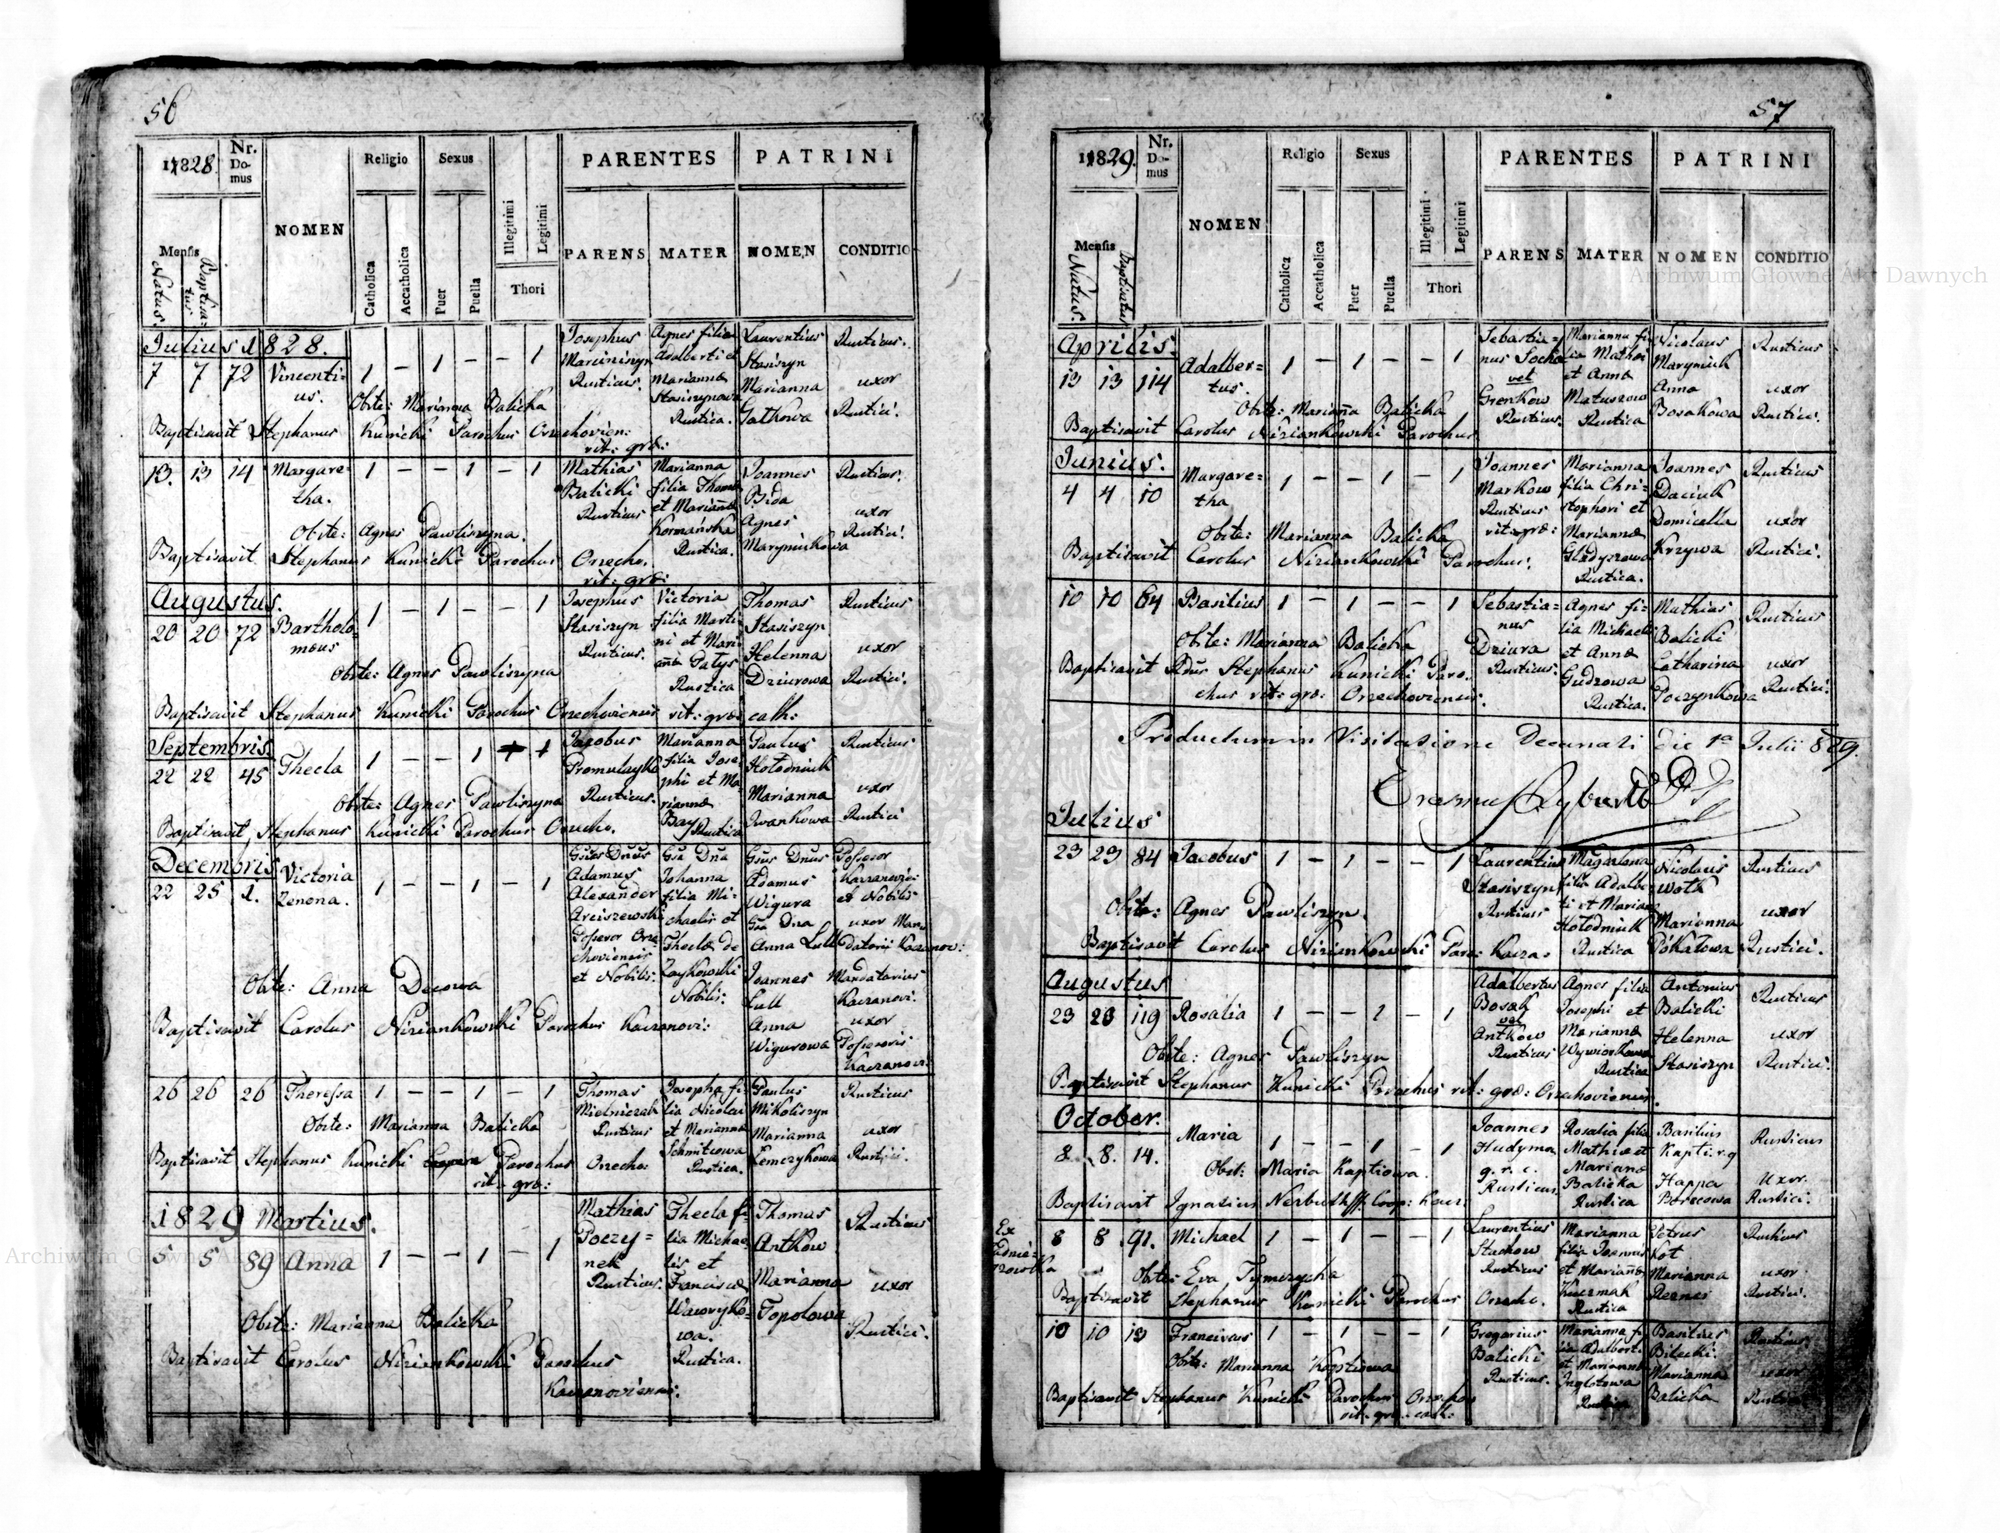 56
1828.
Nr. Domus
Religio
Sexus
PARENTES
PATRINI
NOMEN
Mensis
Natus.
Baptisatus
Catholica
Accatholica
Puer
Puella
Illegitimi
Legitimi
Thori
PARENS
MATER
NOMEN
CONDITIO
Julius 1828.
7 7 72 Vincentius. 1 – 1 – – 1
Josephus Marciniszyn Rusticus.
Agnes filia Adalberti et Mariannæ Stasiszynowa Rustica.
Laurentius Stasiszyn Marianna Gatkowa
Rusticus. uxor Rustici.
Obste: Marianna Balicka
Baptisavit Stephanus Kunicki Parochus Orzechovien: rit: græ:
13. 13 14 Margaretha. 1 – – 1 – 1
Mathias Balicki Rusticus
Marianna filia Thomæ et Mariannæ Kormańska Rustica.
Joannes Bida Agnes Marymukowa
Rusticus uxor Rustici.
Obste: Agnes Pawliszyna.
Baptisavit Stephanus Kunicki Parochus Orzecho. rit: græ:
Augustus.
20 20 72 Bartholomeus 1 – 1 – – 1
Josephus Stasiszyn Rusticus.
Victoria filia Martini et Mariannæ Gatys Rustica
Thomas Stasiszyn Helenna Dziurowa
Rusticus uxor Rustici.
Obste: Agnes Pawliszyna
Baptisavit Stephanus Kunicki Parochus Orzechoviensis rit: græ: cath:
Septembris.
22 22 45 Thecla 1 – – 1 – 1
Jacobus Rusticus.
Marianna filia Josephi et Mariannæ Bay Rustica
Paulus Hołodniuk Marianna Iwankowa
Rusticus uxor Rustici
Obste: Agnes Pawliszyna
Baptisavit Stephanus Kunicki Parochus Orzecho.
Decembris
22 25 1. Victoria Zenona. 1 – – 1 – 1
Gsus Dnus Adamus Alexander Arciszewski Possesor Orzechoviensis et Nobilis:
Gsa Dna Johanna filia Michaelis et Theclæ de Zaykowski Nobilis:
Gsus Dnus Adamus Wigura Gsa Dna Anna Lull Joannes Lull Anna Wigurowa
Possesor Kaczanovien: et Nobilis uxor Mandatarii Kaczanov: Mandatarius Kaczanovi: uxor Possesoris Kaczanovi:
Obste: Anna Decowa
Baptisavit Carolus Niziankowski Parochus Kaczanovi:
26 26 26 Theressa 1 – – 1 – 1
Thomas Mielniczak Rusticus
Josepha filia Nicolai et Mariannæ Schmitzowa Rustica.
Paulus Mikoliszyn Marianna Lemczykowa
Rusticus uxor Rustici.
Obste: Marianna Balicka
Baptisavit Stephanus Kunicki Parochus Orzecho: rit: græ:
1829 Martius.
5 5 89 Anna 1 – – 1 – 1
Mathias Poczynek Rusticus.
Thecla filia Michaelis et Franciscæ Wawrykowa. Rustica.
Thomas Antkow Marianna Topolowa
Rusticus uxor Rustici.
Obste: Marianna Balicka
Baptisavit Carolus Niziankowski Parochus Kaczanoviensis.
57
1829.
Nr. Domus
Religio
Sexus
PARENTES
PATRINI
NOMEN
Mensis
Natus.
Baptisatus
Catholica
Accatholica
Puer
Puella
Illegitimi
Legitimi
Thori
PARENS
MATER
NOMEN
CONDITIO
Aprilis.
13 13 114 Adalbertus. 1 – 1 – – 1
Sebastianus Socha vel Grenkow Rusticus.
Marianna filia Mathei et Annæ Matuszow Rustica
Nicolaus Marymuk Anna Bosakowa
Rusticus uxor Rustici.
Obste: Marianna Balicka
Baptisavit Carolus Niziankowski Parochus
Junius.
4 4 10 Margaretha 1 – – 1 – 1
Joannes Markow Rusticus rit: græ:
Marianna filia Christophori et Mariannæ Gladyszowa Rustica.
Joannes Daciuk Domicella Krzywa
Rusticus uxor Rustici.
Obste: Marianna Balicka
Baptisavit Carolus Niziankowski Parochus.
10 10 64 Basilius 1 – 1 – – 1
Sebastianus Dziura Rusticus.
Agnes filia Michaeli et Annæ Gudzowa Rustica.
Mathias Balicki Catharina Poczynkowa
Rusticus uxor Rustici.
Obste: Marianna Balicka
Baptisavit Rdus Stephanus Kunicki Parochus rit: græ: Orzechoviensis.
Productum in Visitatione Decanali die 1a Julii 829.
Julius
23 23 84 Jacobus 1 – 1 – – 1
Laurentius Stasiszyn Rusticus
Magdalena filia Adalberti et Mariannæ Hołodniuk Rustica
Nicolaus Woth Marianna Pokatowa
Rusticus uxor Rustici.
Obste: Agnes Pawliszyn.
Baptisavit Carolus Niziankowski Paro: Kacza:
Augustus
23 23 119 Rosalia 1 – – 1 – 1
Adalbertus Bosak vel Antkow Rusticus
Agnes filia Josephi et Mariannæ Wywiorkowa Rustica
Antonius Balicki Helenna Stasiszyn
Rusticus uxor Rustici.
Obste: Agnes Pawliszyn
Baptisavit Stephanus Kunicki Parochus rit: græ: Orzechoviensis.
October.
8. 8. 14. Maria 1 – – 1 – 1
Joannes Hudyma g. r. c. Rusticus
Rosalia filia Mathiæ et Mariannæ Balicka Rustica
Basilius Happa Borecowa
Rusticus Uxor. Rustici.
Obst: Maria Kaptiowa.
Baptisavit Ignatius Coop: Kacz:
Ex
8 8 91. Michael 1 – 1 – – 1
Laurentius Stachow Rusticus
Marianna filia Joannis et Mariannæ Kuczmak Rustica
Petrus Kot Marianna Reznes
Rusticus uxor Rustici.
Obste: Eva Tymczycha
Baptisavit Stephanus Kunicki Parochus Orzecho.
10 10 13 Franciscus 1 – 1 – – 1
Gregorius Balicki Rusticus.
Marianna filia Adalberti et Mariannæ Inglotowa Rustica
Basilius Bilecki. Marianna Balicka
Rusticus uxor Rustici
Obste: Marianna Kaptiowa
Baptisavit Stephanus Kunicki Parochus Orzecho rit: græ: cath:
Archiwum Główne Akt Dawnych
Archiwum Główne Akt Dawnych